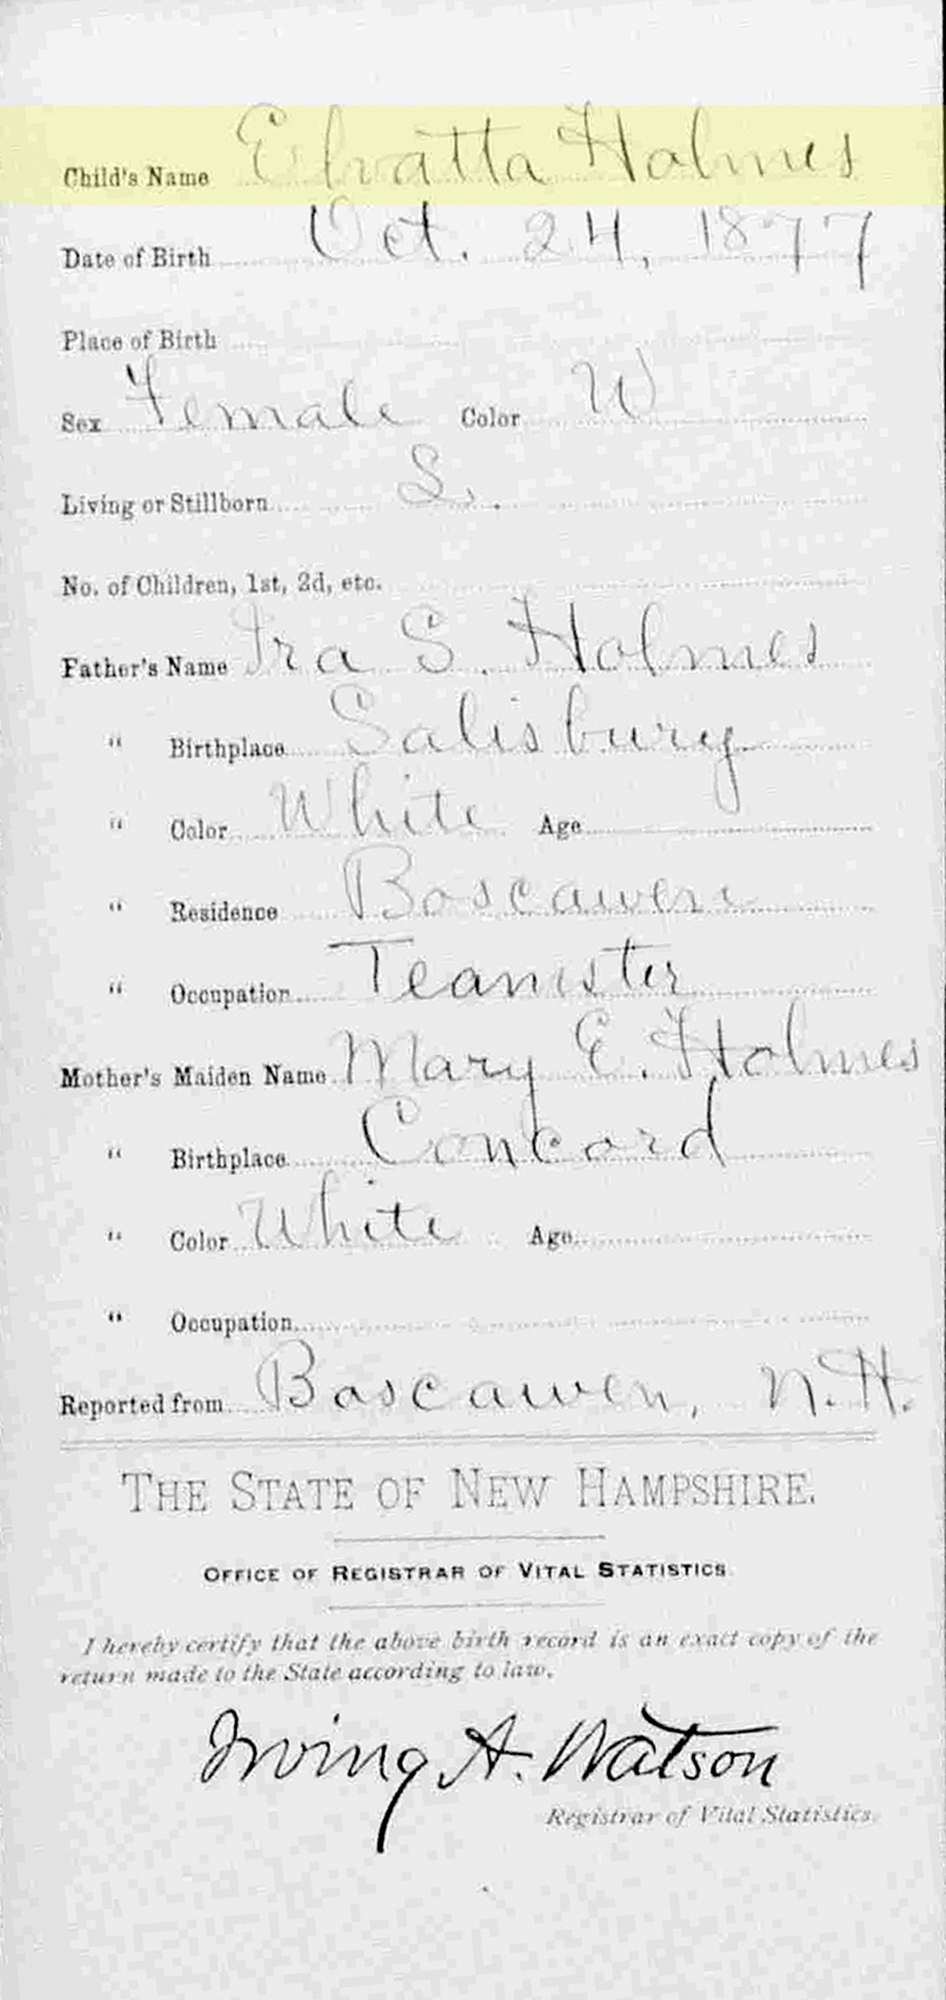 Child's Name Elvatta Holmes
Date of Birth Oct. 24, 1877
Place of Birth
Sex Female Color W
Living or Stillborn S.
No. of Children, 1st, 2d, etc.
Father's Name Ira S. Holmes
" Birthplace Salisbury
" Color White Age
" Residence Boscawen
" Occupation Teamster
Mother's Maiden Name Mary E. Holmes
" Birthplace Concord
" Color White Age
" Occupation
Reported from Boscawen, N.H.
THE STATE OF NEW HAMPSHIRE.
OFFICE OF REGISTRAR OF VITAL STATISTICS.
I hereby certify that the above birth record is an exact copy of the
return made to the State according to law.
Irving A. Watson
Registrar of Vital Statistics.